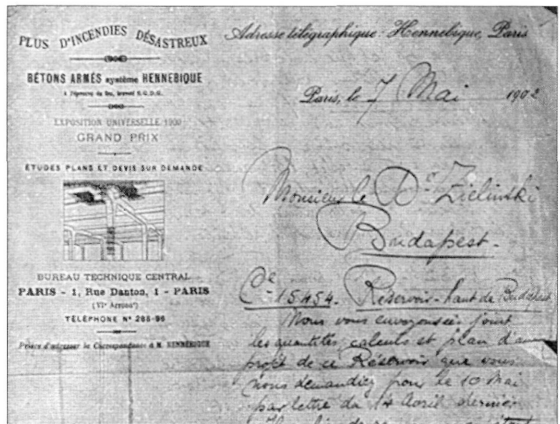 PLUS D'INCENDIES DÉSASTREUX
BÉTONS ARMÉS système HENNEBIQUE
à l'épreuve du feu, breveté S.G.D.G.
EXPOSITION UNIVERSELLE 1900
GRAND PRIX
ÉTUDES PLANS ET DEVIS SUR DEMANDE
BUREAU TECHNIQUE CENTRAL
PARIS - 1, Rue Danton, 1 - PARIS
(VIe Arrondt)
TÉLÉPHONE N° 285-96
Prière d'adresser la Correspondance à M. HENNEBIQUE
Adresse télégraphique: Hennebique, Paris
Paris, le 7 Mai 1902
Monsieur le Dr Zielinski
Budapest.
Ce 15454. Réservoir-haut de Budapest
Nous vous envoyons ci joint
les quantités, calculs et plan d'un
projet de ce Réservoir que vous
nous demandiez pour le 10 Mai
par lettre du 14 Avril dernier